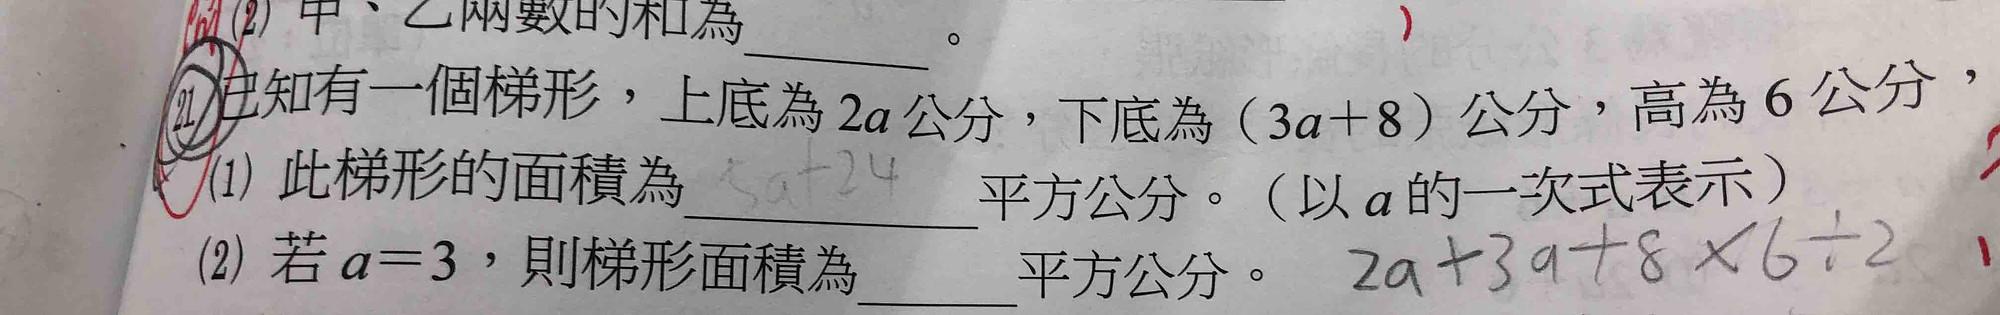 (2) 甲、乙兩數的和為______。
21 已知有一個梯形，上底為 2a 公分，下底為（3a＋8）公分，高為 6 公分，
(1) 此梯形的面積為 5a+24 平方公分。（以 a 的一次式表示）
(2) 若 a＝3，則梯形面積為______平方公分。 2a+3a+8×6÷2